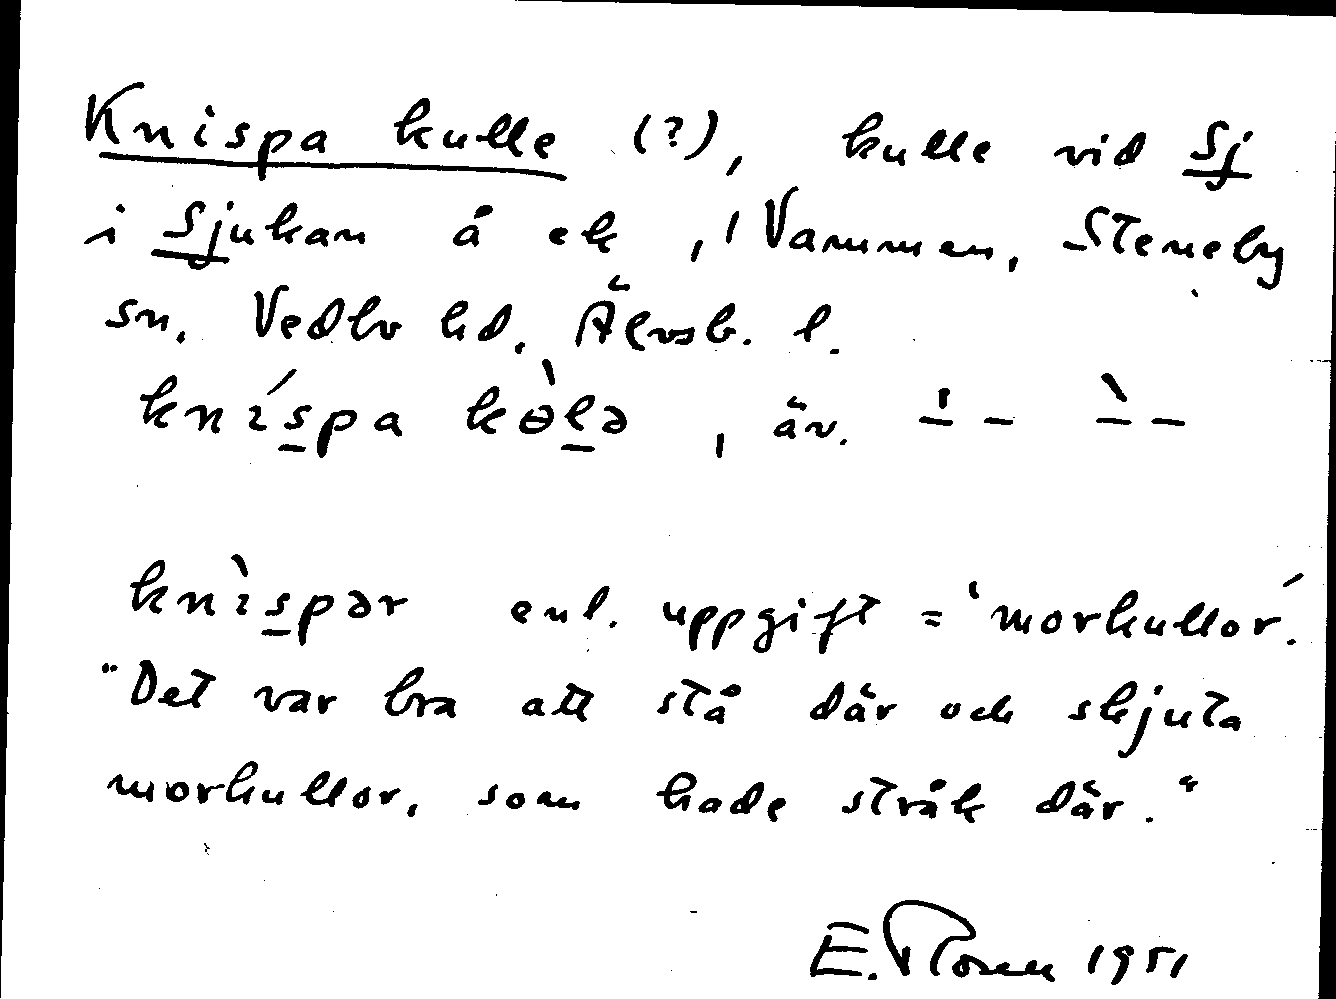 Knispa kulle (?), kulle vid Sj
i Sjukan å ek , i Vammen, Steneby
sn, Vedbo hd, Älvsb. l.
knispa kɵ̀lə , äv. –́ – –̀ –
knìspər enl. uppgift = 'morkullor'.
"Det var bra att stå där och skjuta
morkullor, som hade stråk där."
E. Rosen 1951